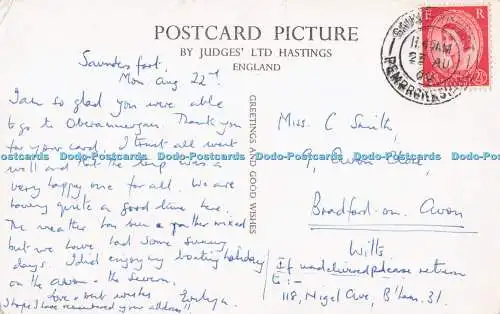 POSTCARD PICTURE
BY JUDGES' LTD HASTINGS
ENGLAND
E R
11 45 AM
23 AU
PEMBROKESHIRE
2½
GREETINGS AND GOOD WISHES
Saunders foot.
Mon Aug 22nd.
I am so glad you were able
to go to Oberammergau. Thank you
for your card. I trust all went
well and that the trip was a
very happy one for all. We are
having quite a good time here.
The weather has been rather mixed
but we have had some sunny
days. I did enjoy my boating holiday
on the Avon & the Severn.
Love & best wishes Evelyn.
I hope I have remembered your address!!
Miss. C Smith,
9, Avon Close,
Bradford-on-Avon
Wilts
If undelivered please return
to:-
118, Nigel Ave, B'ham. 31.
Dodo-Postcards Dodo-Postcards Dodo-Postcards Dodo-Postcards Dodo-Postcards Dodo-Postcards